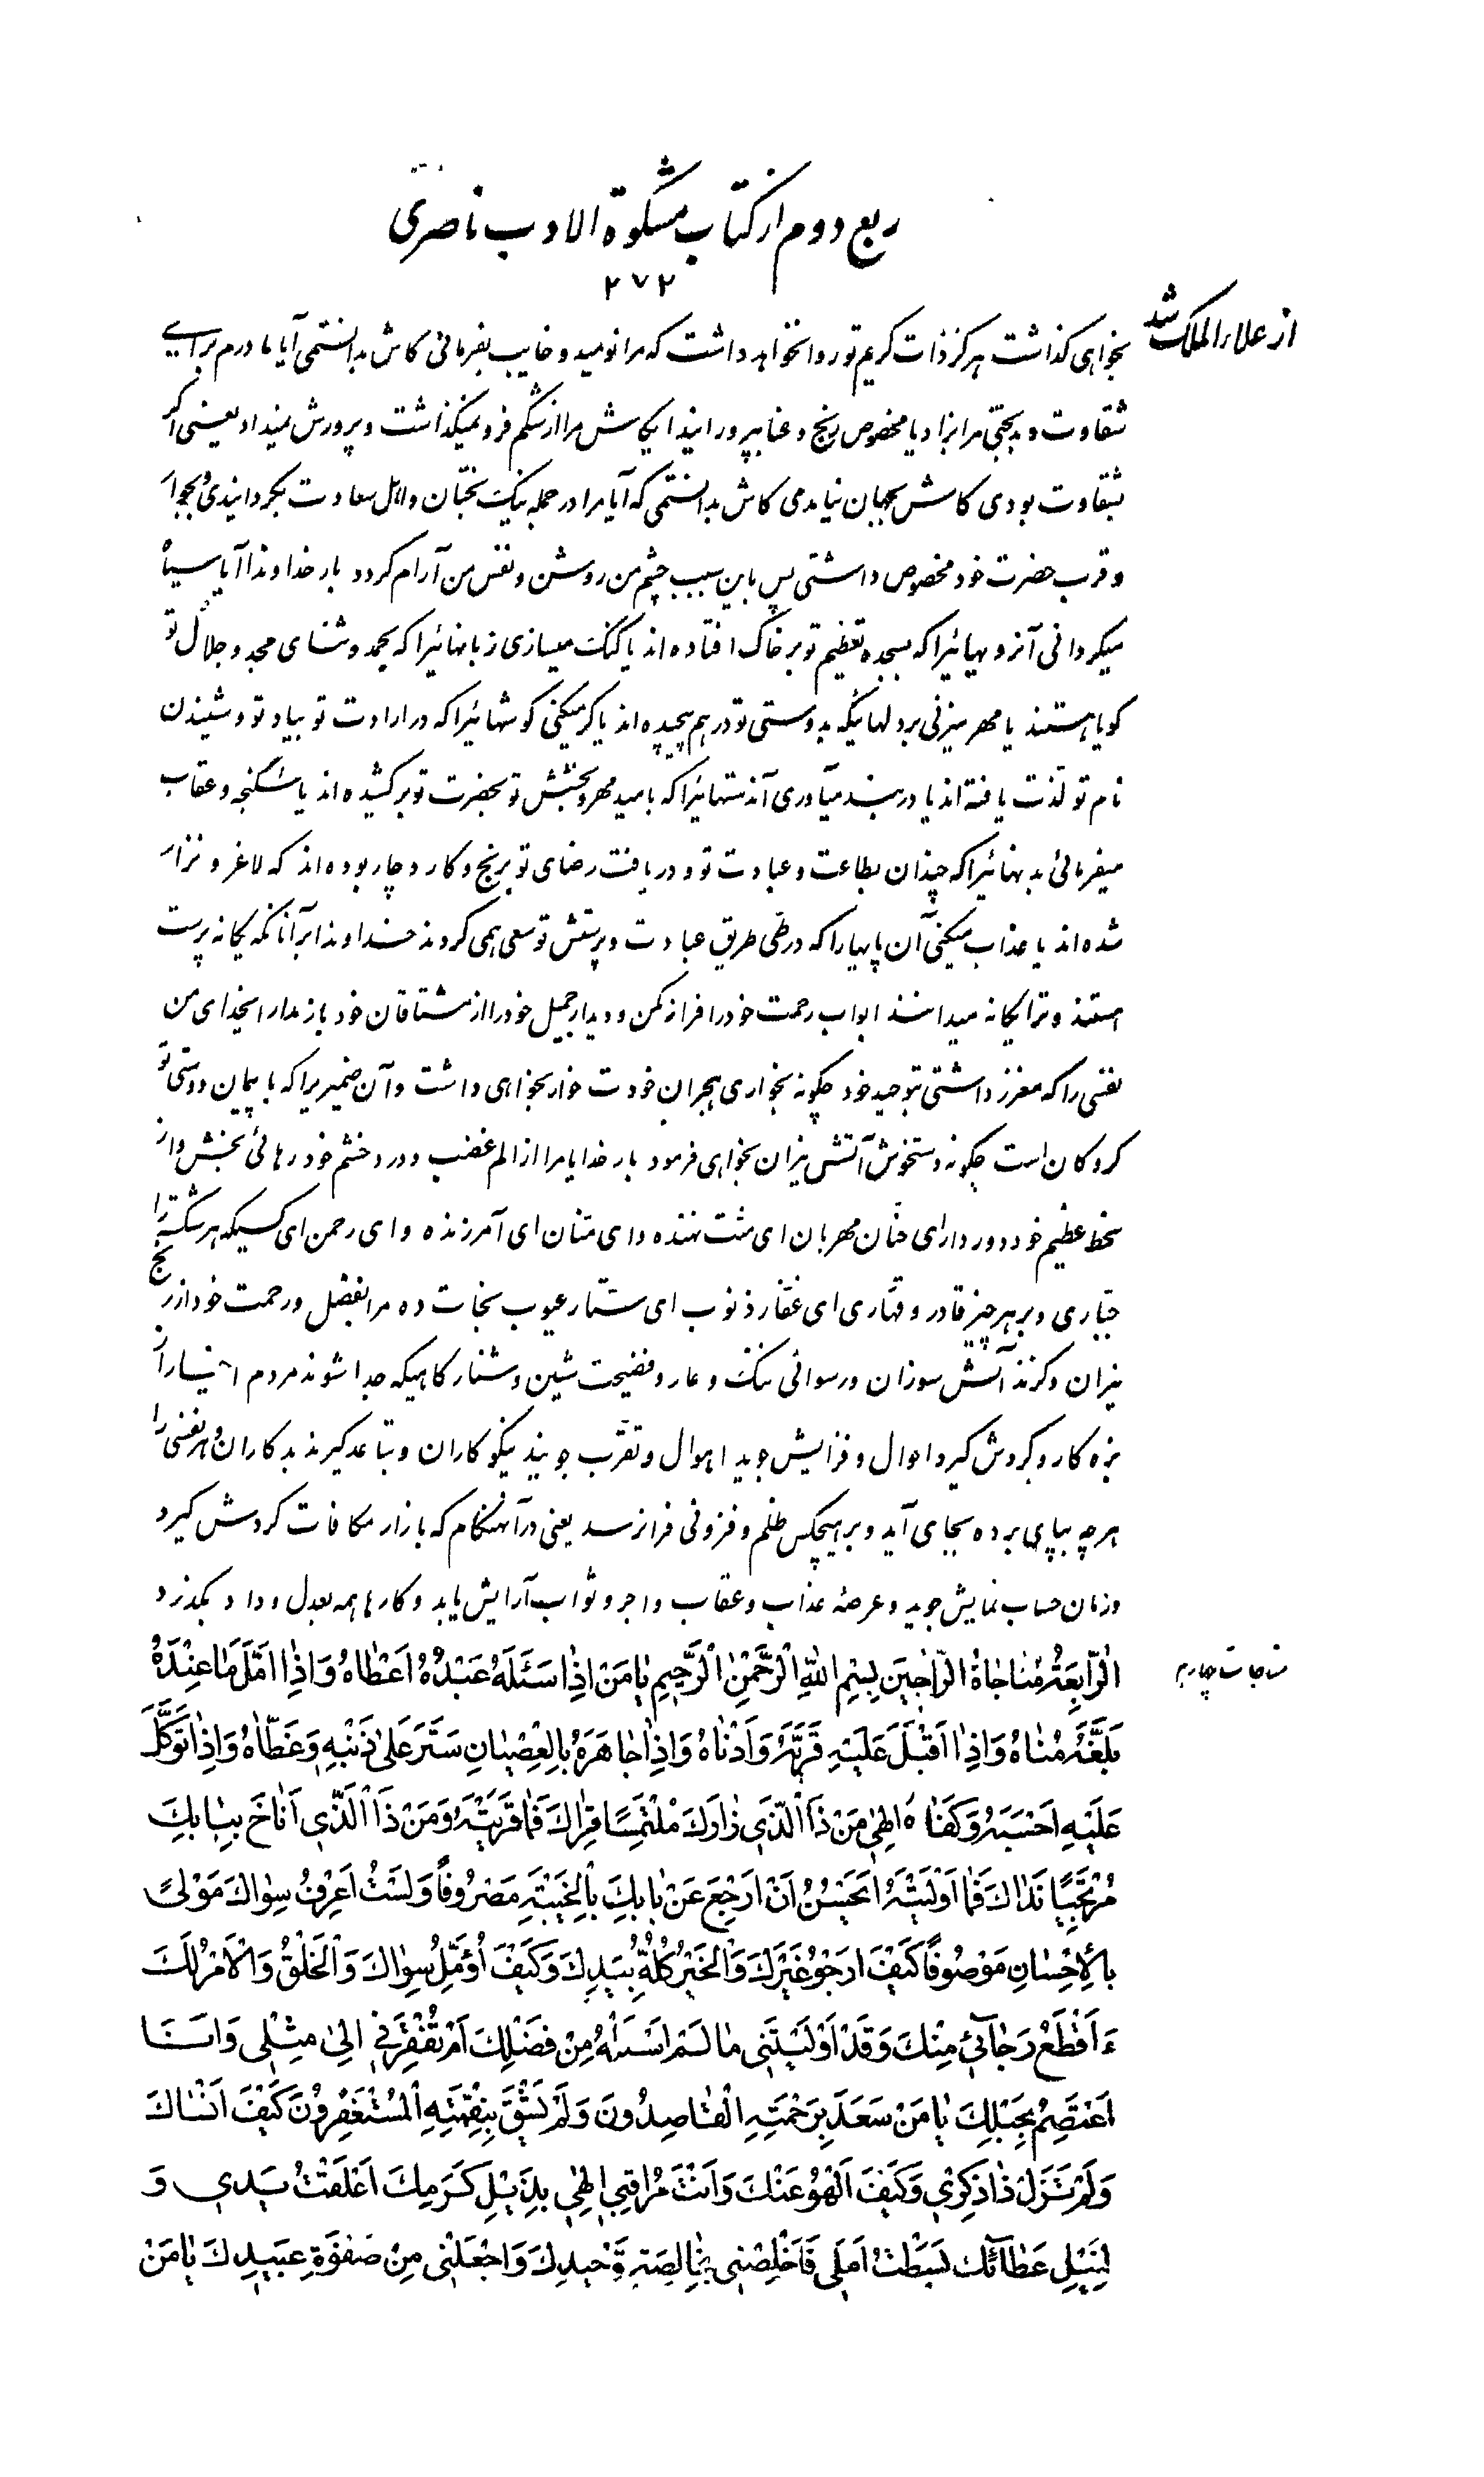 ربع دوم از کتاب مشکوة الادب ناصری
۲۷۲
از علاء الملک شد
نخواهی کذاشت هرکز ذات کریم تو روا نخواهد داشت که مرا نومید و خایب بفرمائی کاش بدانستمی آیا مادرم برای
شقاوت و بدبختی مرا بزاد یا مخصوص رنج و عنا بپرورانید ایکاش مرا از شکم فرو نمیکذاشت و پرورش نمیداد یعنی اکر
شقاوت بودی کاش بجهان نیامدمی کاش بدانستمی که آیا مرا در جمله نیک بختان و اهل سعادت بکردانیدی و بجوار
و قرب حضرت خود مخصوص داشتی پس باین سبب چشم من روشن و نفس من آرام کردد بار خداوندا آیا سیاه
میکردانی آنرویهائیرا که بسجده تعظیم تو بر خاک افتاده اند یا کنک میسازی زبانهائیرا که بحمد و ثنای مجد و جلال تو
کویا هستند یا مهر میزنی بر دلهائیکه بدوستی تو در هم پیچیده اند یا کر میکنی کوشهائیرا که در ارادت تو بیاد تو و شنیدن
نام تو لذت یافته اند یا در بند میآوری آندستهائیرا که بامید مهر و بخشش تو بحضرت تو برکشیده اند یا شکنجه و عقاب
میفرمائی بدنهائیرا که چندان بطاعت و عبادت تو و دریافت رضای تو برنج و کار دچار بوده اند که لاغر و نزار
شده اند یا عذاب میکنی آن پایهارا که در طی طریق عبادت و پرستش تو سعی همی کردند خداوندا بر آنانکه یکانه پرست
هستند و ترا یکانه میدانند ابواب رحمت خود را فراز مکن و دیدار جمیل خود را از مشتاقان خود باز مدار ایخدای من
نفسی را که معزز داشتی بتوحید خود چکونه بخواری هجران خودت خوار بخواهی داشت و آن ضمیریرا که با پیمان دوستی تو
کروکان است چکونه دستخوش آتش نیران بخواهی فرمود بار خدایا مرا از الم غضب و درد خشم خود رهائی بخش و از
سخط عظیم خود دور دار ای حنان مهربان ای منت نهنده و ای منان ای آمرزنده و ای رحمن ای کسیکه هر شکسته را
جباری و بر هر چیز قادر و قهاری ای غفار ذنوب ای ستار عیوب نجات ده مرا بفضل و رحمت خود از رنج
نیران و کزند آتش سوزان و رسوائی ننک و عار و فضیحت شین و شنار کاهیکه جدا شوند مردم اخیار از
بزه کار و بکردش کیرد احوال و فزایش جوید اهوال و تقرب جویند نیکوکاران و تباعد کیرند بدکاران و هر نفسی را
هر چه بپای برده بجای آید و بر هیچکس ظلم و فزونی فرا نرسد یعنی در آنهنکام که بازار مکافات کردش کیرد
و زمان حساب نمایش جوید و عرصهٔ عذاب و عقاب و اجر و ثواب آرایش یابد و کارها همه بعدل و داد بکذرد
مناجات چهارم
اَلرّابِعَةُ مُناجاةُ الرّاجینَ بِسْمِ اللهِ الرَّحْمنِ الرَّحیمِ یا مَنْ اِذا سَئَلَهُ عَبْدُهُ اَعْطاهُ وَ اِذا اَمَّلَ ما عِنْدَهُ
بَلَّغَهُ مُناهُ وَ اِذا اَقْبَلَ عَلَیْهِ قَرَّبَهُ وَ اَدْناهُ وَ اِذا جاهَرَهُ بِالْعِصْیانِ سَتَرَ عَلی ذَنْبِهِ وَ غَطّاهُ وَ اِذا تَوَکَّلَ
عَلَیْهِ اَحْسَبَهُ وَ کَفاهُ اِلهی مَنْ ذَا الَّذی نَزَلَ بِكَ مُلْتَمِسًا قِراكَ فَما قَرَیْتَهُ وَ مَنْ ذَا الَّذی اَناخَ بِبابِكَ
مُرْتَجِیًا نَداكَ فَما اَوْلَیْتَهُ اَیَحْسُنُ اَنْ اَرْجِعَ عَنْ بابِكَ بِالْخَیْبَةِ مَصْرُوفًا وَ لَسْتُ اَعْرِفُ سِواكَ مَوْلیً
بِالْاِحْسانِ مَوْصُوفًا کَیْفَ اَرْجُو غَیْرَكَ وَ الْخَیْرُ کُلُّهُ بِیَدِكَ وَ کَیْفَ اُؤَمِّلُ سِواكَ وَ الْخَلْقُ وَ الْاَمْرُ لَكَ
ءَاَقْطَعُ رَجآئی مِنْكَ وَ قَدْ اَوْلَیْتَنی ما لَمْ اَسْئَلْهُ مِنْ فَضْلِكَ اَمْ تُفْقِرُنی اِلی مِثْلی وَ اَنَا
اَعْتَصِمُ بِحَبْلِكَ یا مَنْ سَعَدَ بِرَحْمَتِهِ الْقاصِدُونَ وَ لَمْ یَشْقَ بِنِقْمَتِهِ الْمُسْتَغْفِرُونَ کَیْفَ اَنْساكَ
وَ لَمْ تَزَلْ ذاکِری وَ کَیْفَ اَلْهُو عَنْكَ وَ اَنْتَ مُراقِبی اِلهی بِذَیْلِ کَرَمِكَ اَعْلَقْتُ یَدی وَ
لِنَیْلِ عَطآئِكَ بَسَطْتُ اَمَلی فَاَخْلِصْنی بِخالِصَةِ تَوْحیدِكَ وَ اجْعَلْنی مِنْ صَفْوَةِ عَبیدِكَ یا مَنْ